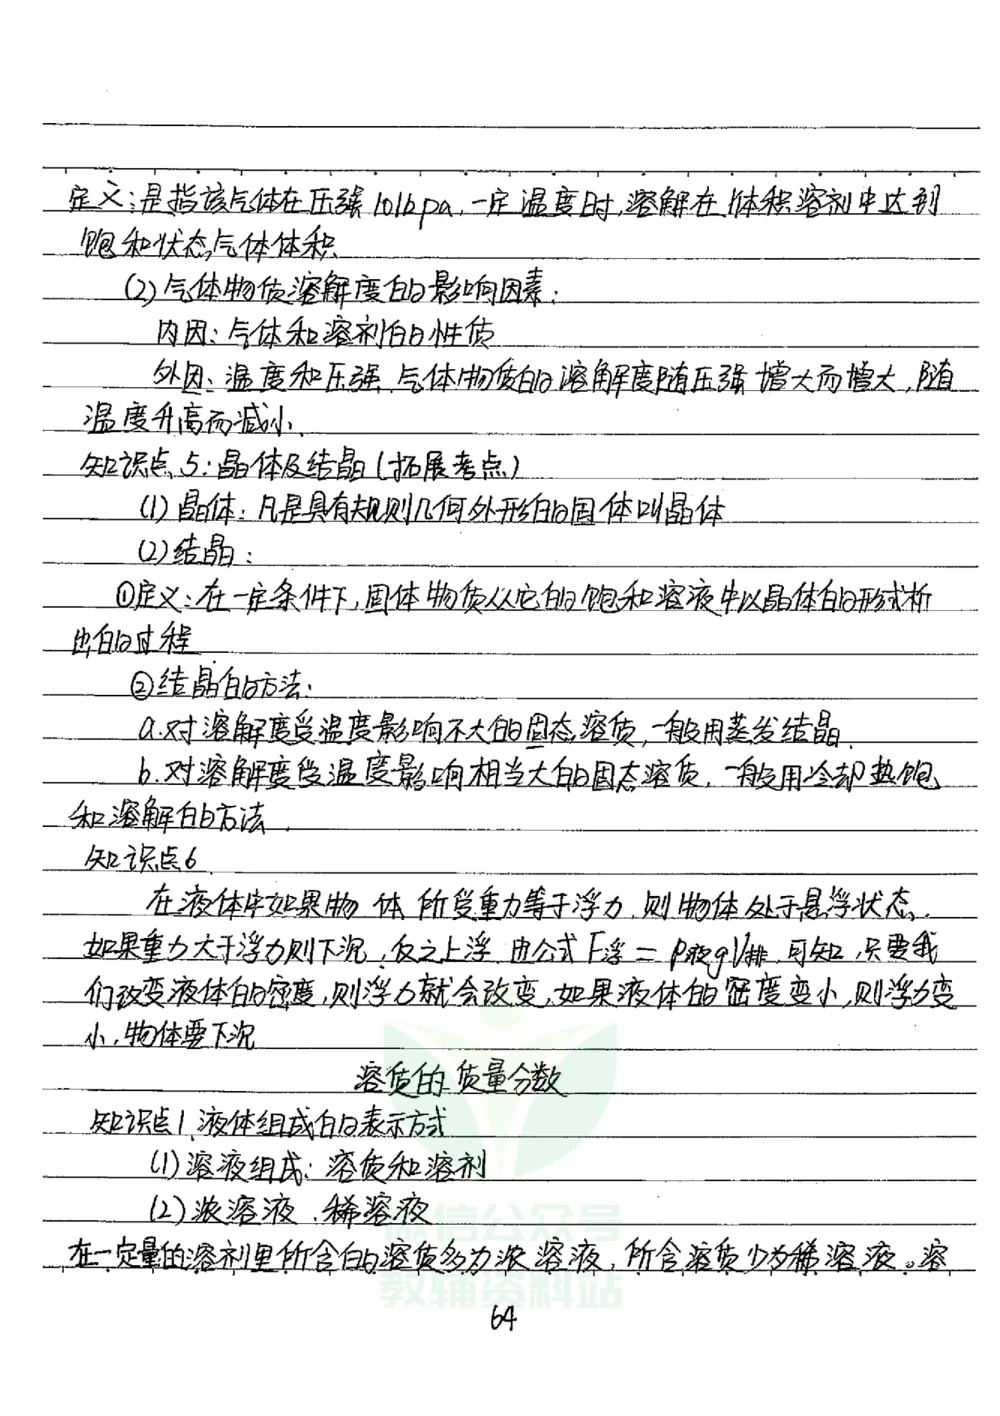 定义:是指该气体在压强101kpa,一定温度时,溶解在1体积溶剂中达到
饱和状态气体体积.
(2)气体物质溶解度的影响因素:
内因:气体和溶剂的性质
外因:温度和压强.气体物质的溶解度随压强增大而增大,随
温度升高而减小.
知识点5:晶体及结晶(拓展考点)
(1)晶体:凡是具有规则几何外形的固体叫晶体
(2)结晶:
①定义:在一定条件下,固体物质从它的饱和溶液中以晶体的形式析
出的过程
②结晶的方法:
a.对溶解度受温度影响不大的固态溶质,一般用蒸发结晶.
b.对溶解度受温度影响相当大的固态溶质,一般用冷却热饱
和溶解的方法.
知识点6
在液体中如果物体所受重力等于浮力,则物体处于悬浮状态.
如果重力大于浮力则下沉,反之上浮.由公式F浮=ρ液gV排,可知,只要我
们改变液体的密度,则浮力就会改变,如果液体的密度变小,则浮力变
小,物体要下沉
溶质的质量分数
知识点1.液体组成的表示方式
(1)溶液组成:溶质和溶剂
(2)浓溶液.稀溶液
在一定量的溶剂里所含的溶质多为浓溶液,所含溶质少为稀溶液。溶
微信公众号
教辅资料站
64